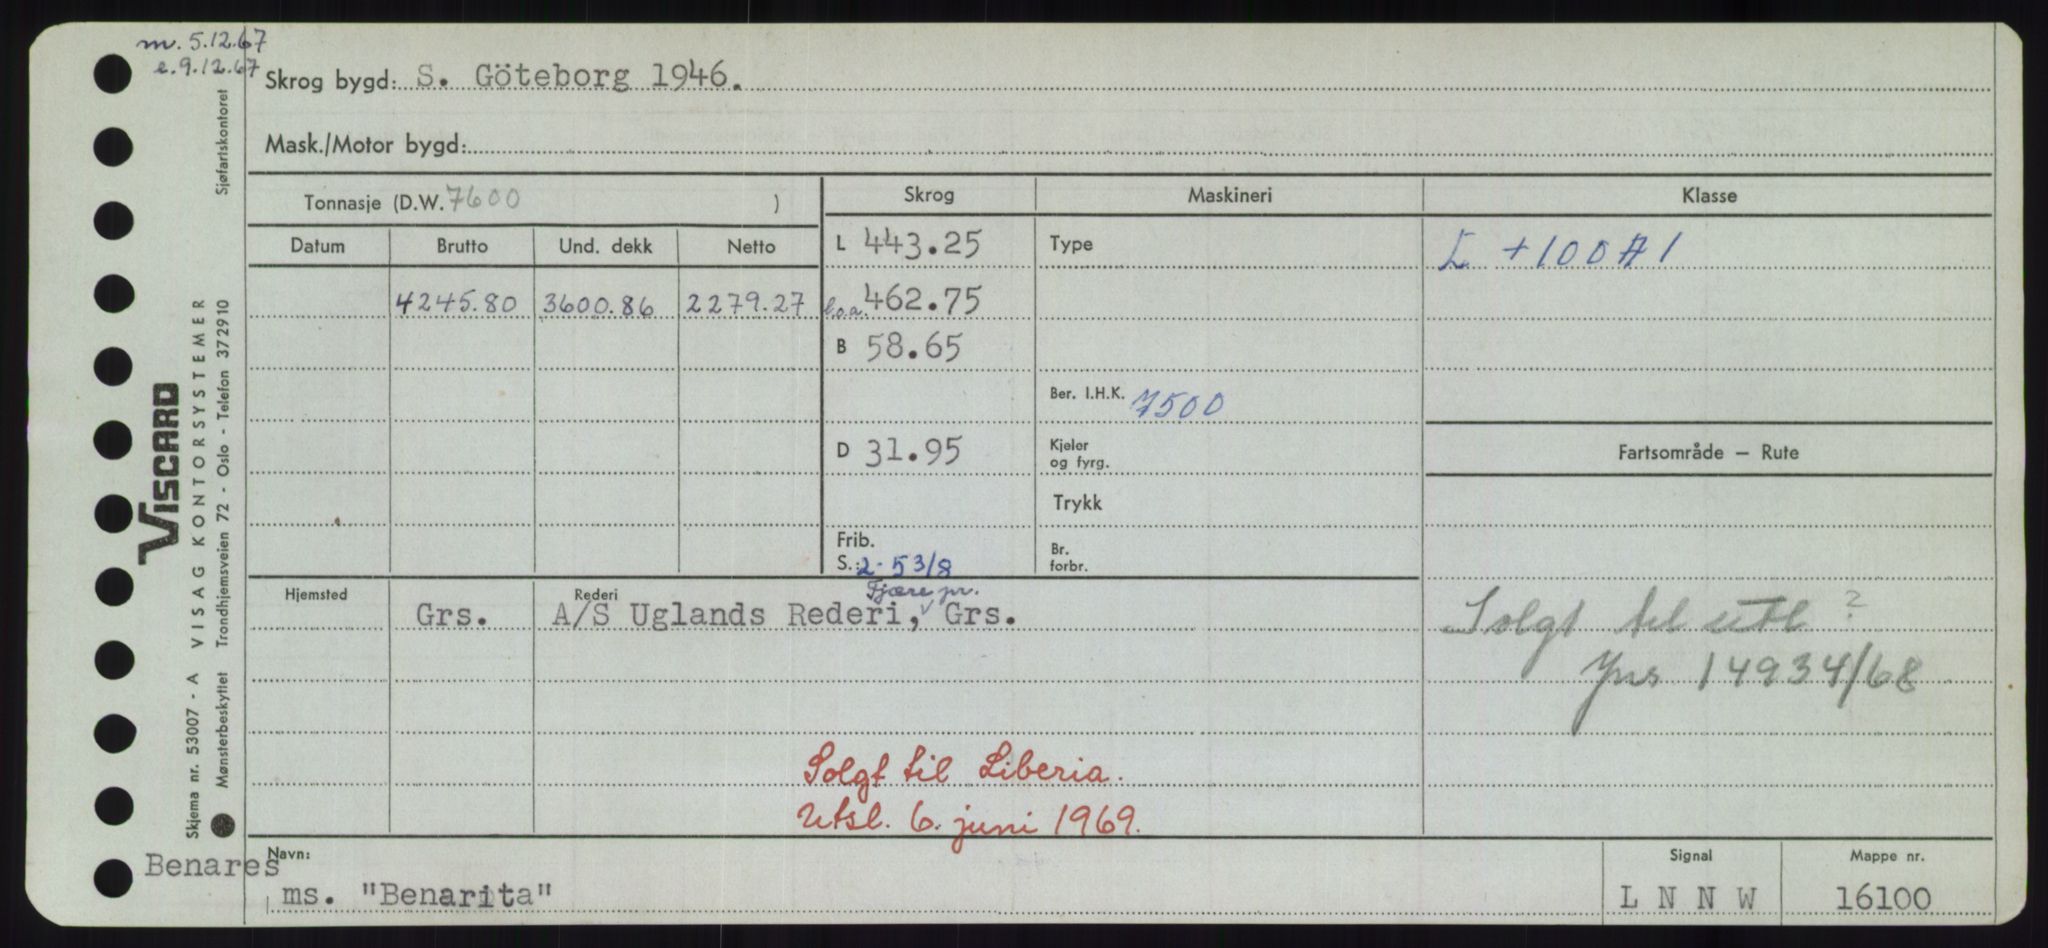 m. 5.12.67
e. 9.12.67
Skrog bygd: S. Göteborg 1946.
Mask./Motor bygd:
Tonnasje (D.W. 7600 )
Skrog
Maskineri
Klasse
Datum Brutto Und. dekk Netto
L 443.25
Type
+100A1
4245.80 3600.86 2279.27
l.o.a. 462.75
B 58.65
Ber. I.H.K. 7500
D 31.95
Kjeler
og fyrg.
Fartsområde — Rute
Trykk
Frib.
S.: 2-5 3/8
Br.
forbr.
Hjemsted
Rederi
Fjære pr.
Grs. A/S Uglands Rederi, Grs.
Solgt til utl ?
14934/68
Solgt til Liberia.
Utsl. 6. juni 1969.
Navn:
Benares
ms. "Benarita"
Signal
L N N W
Mappe nr.
16100
VISCARD
Skjema nr. 53007 - A VISAG KONTORSYSTEMER
Mønsterbeskyttet Trondhjemsveien 72 - Oslo - Telefon 372910 Sjøfartskontoret